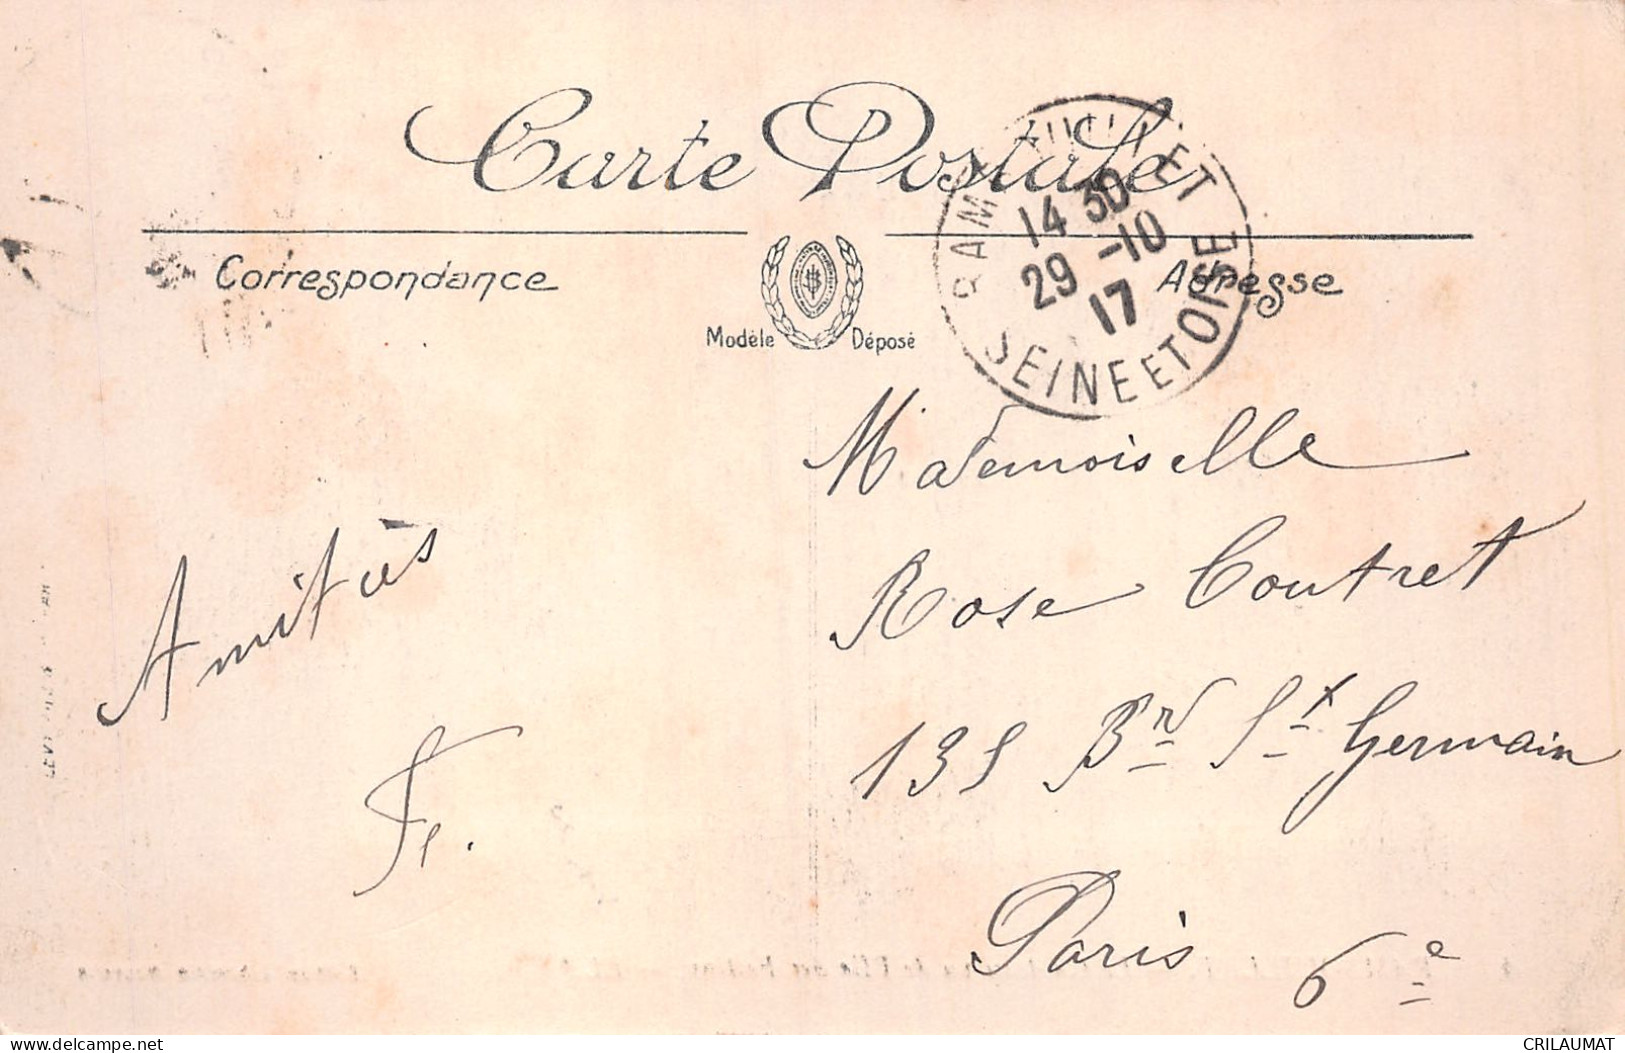 Carte Postale
Correspondance
Modèle Déposé
Adresse
RAMBOUILLET
14 30
29 -10
17
SEINE ET OISE
Mademoiselle
Rose Coutret
135 Bd St Germain
Paris 6e
Amitiés
F.
delcampe.net
CRILAUMAT